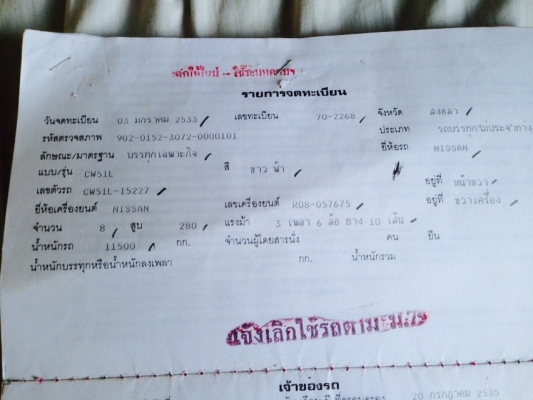 รายการจดทะเบียน
วันจดทะเบียน 03 มกราคม 2533 เลขทะเบียน 70-2268 จังหวัด สงขลา
รหัสตรวจสภาพ 902-0152-3072-0000101 ประเภท รถบรรทุกไม่ประจำทาง
ลักษณะ/มาตรฐาน บรรทุกเฉพาะกิจ ยี่ห้อรถ NISSAN
แบบ/รุ่น CW51L สี ขาว ฟ้า
เลขตัวรถ CW51L-15227 อยู่ที่ หน้าขวา
ยี่ห้อเครื่องยนต์ NISSAN เลขเครื่องยนต์ RD8-057675 อยู่ที่ ขวาเครื่อง
จำนวน 8 สูบ 280 แรงม้า 3 เพลา 6 ล้อ ยาง 10 เส้น
น้ำหนักรถ 11500 กก. จำนวนผู้โดยสารนั่ง คน ยืน
น้ำหนักบรรทุกหรือน้ำหนักลงเพลา กก. น้ำหนักรวม
แจ้งเลิกใช้รถตาม ม.79
เจ้าของรถ
20 กรกฎาคม 2535